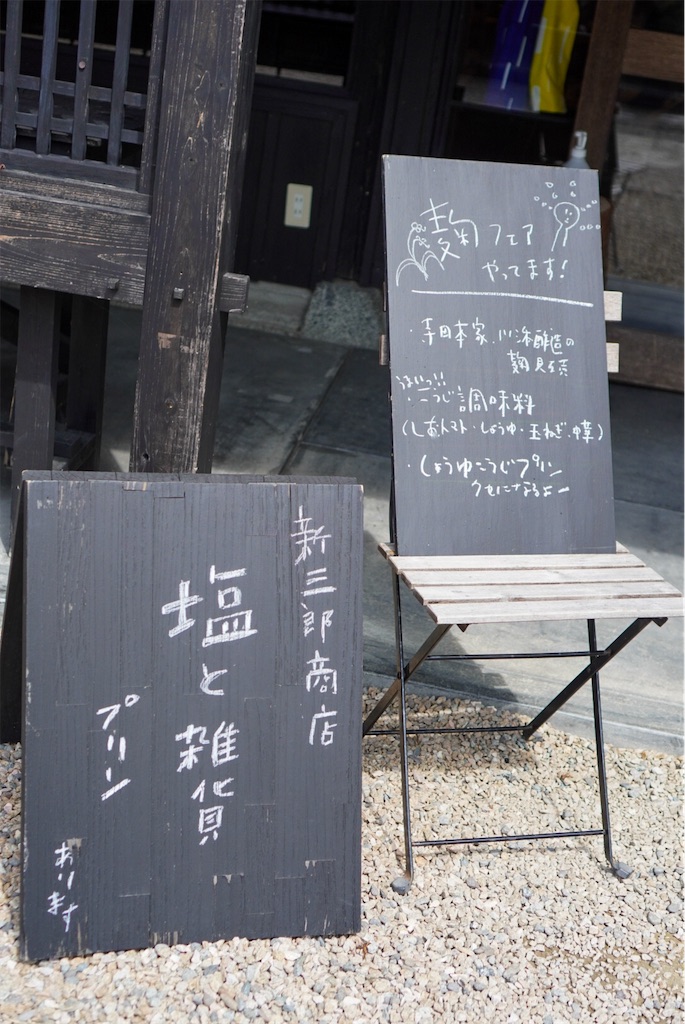 新三郎商店
塩と雑貨
プリン
あります
麹フェア
やってます!
・寺田本家、川津醸造の
麹見本
はいつ!!
・こうじ調味料
(しおトマト・しょうゆ・玉ねぎ・中華)
・しょうゆこうじプリン
クセになるよー